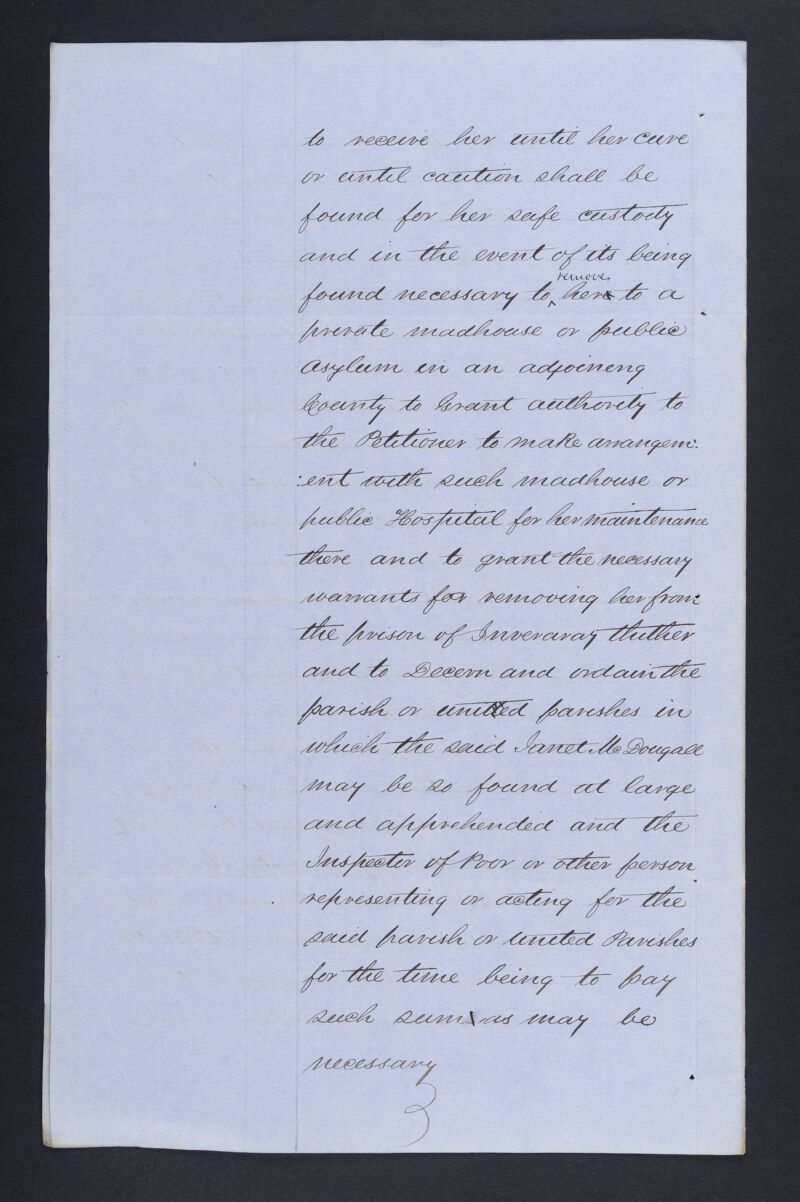 to receive her until her cure
or until caution shall be
found for her safe custody
and in the event of its being
found necessary to remove her to a
private madhouse or public
Asylum in an adjoineng
County to Grant authority to
the Petitioner to make arrangem:
:ent with such madhouse or
public Hospital for her maintenance
there and to grant the necessary
warrants for removing her from
the prison of Inveraray thither
and to Decern and ordain the
parish or united parishes in
which the said Janet McDougall
may be so found at large
and apprehended and the
Inspector of Poor or other person
representing or acting for the
said parish or United Parishes
for the time being to pay
such sum as may be
necessary